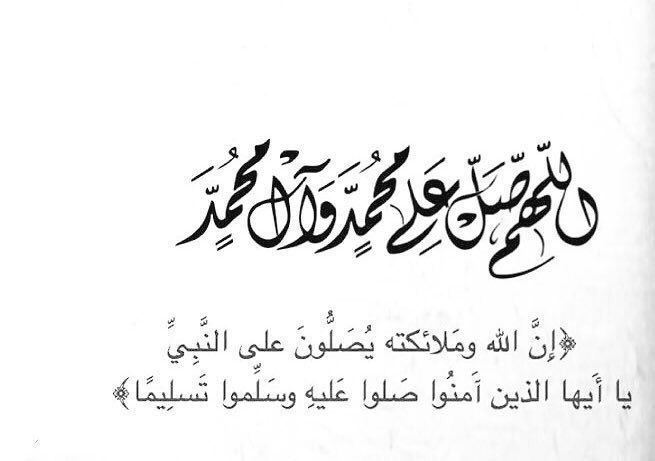 اللّهم صَلِّ عَلى مُحمَّدٍ وَآل مُحمَّدٍ
﴿إِنَّ الله ومَلائكته يُصَلُّونَ على النَّبِيِّ
يا أَيها الذين آمنُوا صَلوا عَليهِ وسَلِّموا تَسلِيمًا﴾